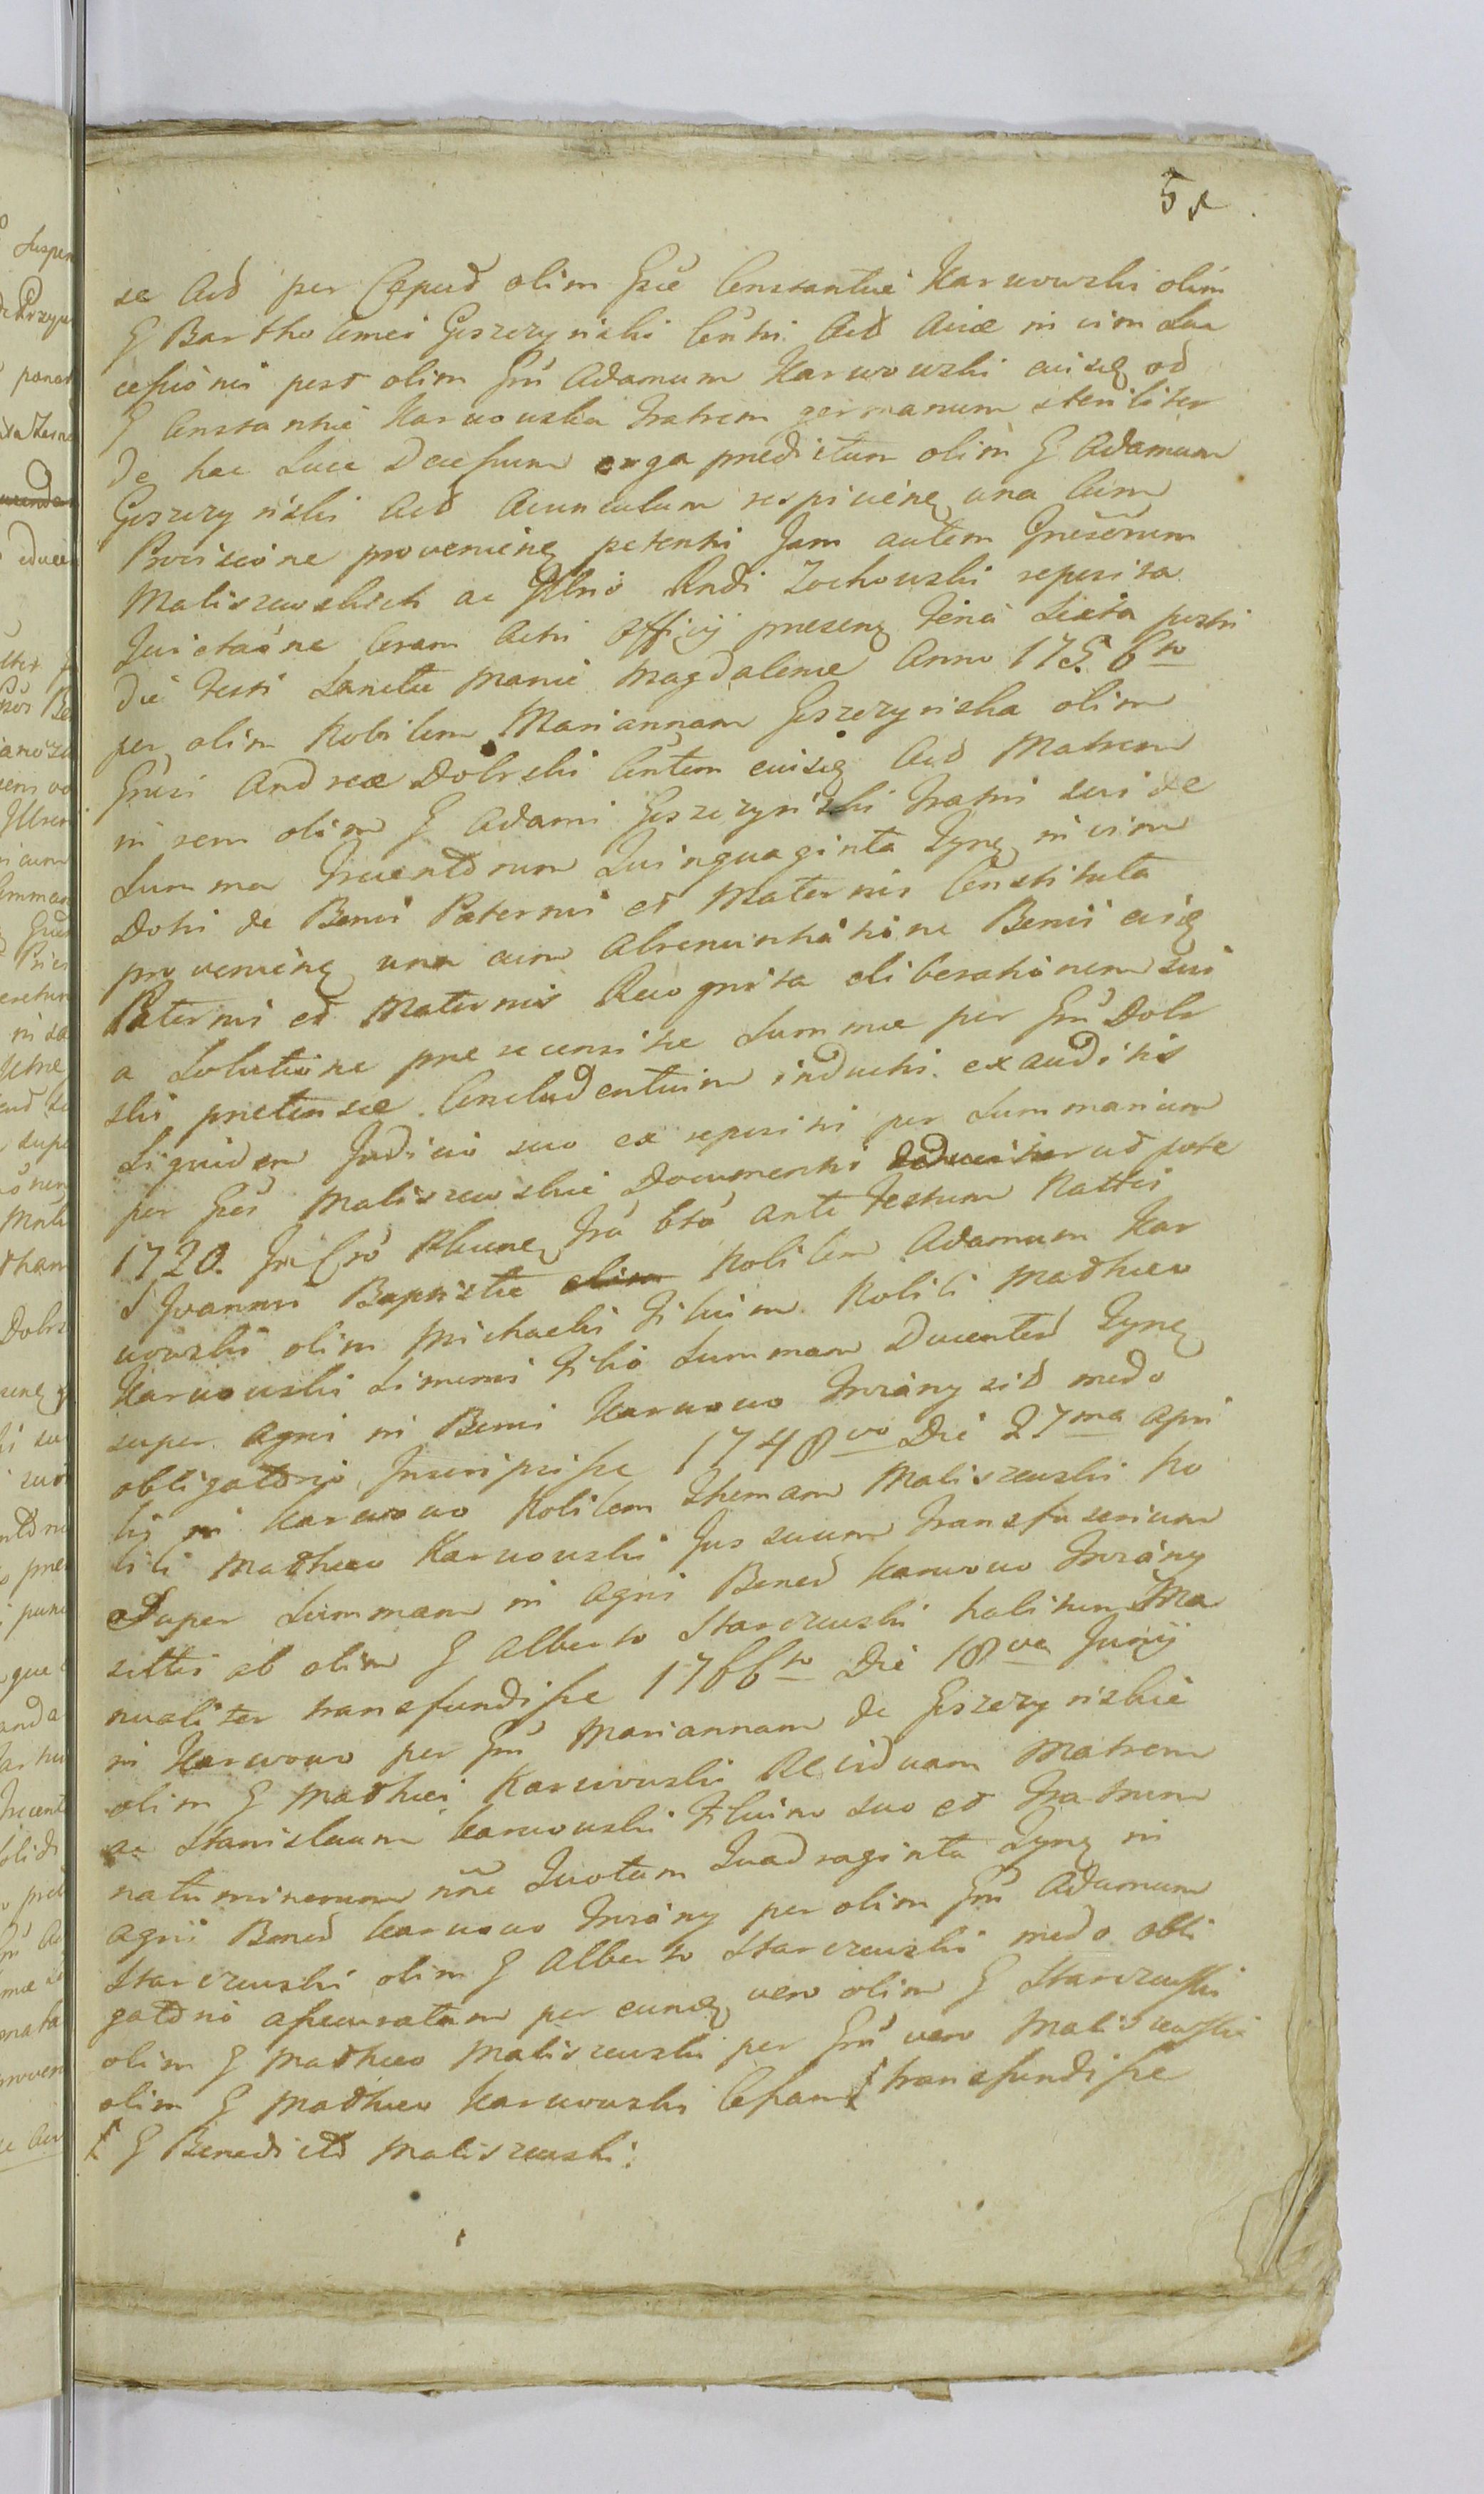 51
se Act per Caput olim Gsae Constantiae Karwowski olim
G Bartholomei Gószczyński Cónthi Act Avia in vim Suc
cessionis post olim Grű Adamum Karwowski eiusq od
G Constantia Karwowska Fratrem germanum steriliter
de hac Luce Decessum erga praedictum olim G Adamum
Goszczyński Act Avunculum respicieñq una Cum
Provisione provenieñq petenti Jam autem Gnesőrum
Maliszewskich ac Jllrió Rndi Zochowski reposita
Quietaőne Coram Actis Officij praesenq Feria Sexta posti
die Festi Sanctae Mariae Magdalenae Anno 1756to
per olim Nobilem Mariannam Goszczynska olim
Gnűsi Andreae Dobrski Cóntem eiusq Act Matrem
in rem olim G Adami Goszczyński Fratris sui de
Summa Trecentorum Quinquaginta Zynq in vim
Dotis de Bonis Paternis et Maternis Constituta
provenieñq una cum Abrenuntiatione Bonis eisq
Paternis et Maternis Recognita eliberationem sui
a Solutione praerecensitae Summae per Grű Dobr
ski praetensae Concludentium inducti. exauditis
Siquidem Judicio suo ex repositis per Summarium
per Gós Maliszewskie Documentis ut pote
1720. In Cró Ploceñq Fria 6tá ante Festum Nattis
S Joannis Baptistae olim Nobilem Adamum Kar
wowski olim Michaelis Filium Nobili Mathaeo
Karwowski Simonis Filio Summam Ducentes Zynq
super Agris in Bonis Karwowo Inrány sit medo
obligatorio Inscripsisse 1748vo Die 27ma Apri
lis in Karwowo Nobilem Thomam Maliszewski No
bili Mathaeo Karwowski Jus suum Transfusorium
Super Summam in Agris Bonor Karwowo Inrány
sittis ab olim G Alberto Starczewski habitum Ma
nualiter transfundisse 1766to Die 18va Junij
in Karwowo per Grű Mariannam de Goszczynskie
olim G Mathaei Karwowski Relictuam Matrem
ac Stanislaum Karwowski Filium suo et Fratrum
natu minorum nñe Quotam Quadraginta Zynq in
Agris Bonor Karwowo Inrány per olim Grű Adamum
Starczewski olim G Alberto Starczewski medo obli
gatorio assecuratam per eunq vero olim G Starczewski
olim G Mathaeo Maliszewski per Grű vero Maliszewski
olim G Mathaeo Karwowski Cessam transfundisse
G Benedicto Maliszewski.